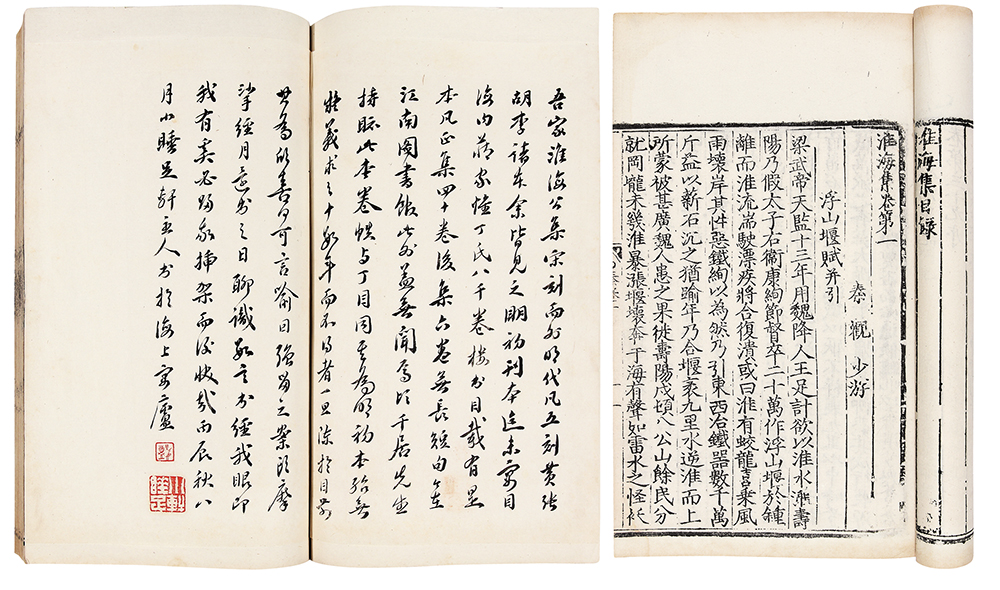 淮海集目録
淮海集卷第一
秦 觀 少游
浮山堰賦并引
梁武帝天監十三年用魏降人王足計欲以淮水灌壽
陽乃假太子右衞康絢節督卒二十萬作浮山堰於鍾
離而淮流湍駛漂疾將合復潰或曰淮有蛟龍喜乘風
雨壞岸其性惡鐵絢以為然乃引東西冶鐵器數千萬
斤益以薪石沉之猶踰年乃合堰袤九里水逆淮而上
所蒙被甚廣魏人患之果徙壽陽戍頓八公山餘民分
就岡隴未幾淮暴漲堰壞奔于海有聲如雷水之怪袄
吾家淮海公集宋刻而外明代凡五刻黄張
胡李諸本余皆見之明初刊本迄未寓目
海内藏家惟丁氏八千卷樓书目載有是
本凡正集四十卷後集六卷無長短句在
江南圖書館此外蓋無聞焉頃千居先生
持眎此本卷帙与丁目同其為明初本殆無
疑義求之十數年而不得者一旦陳於目前
其為欣喜曷可言喻因強留之案頭摩
挲經月還书之日聊識數言书經我眼即
我有矣必歸家插架而後快哉丙辰秋八
月小睡足軒主人书於海上寓廬